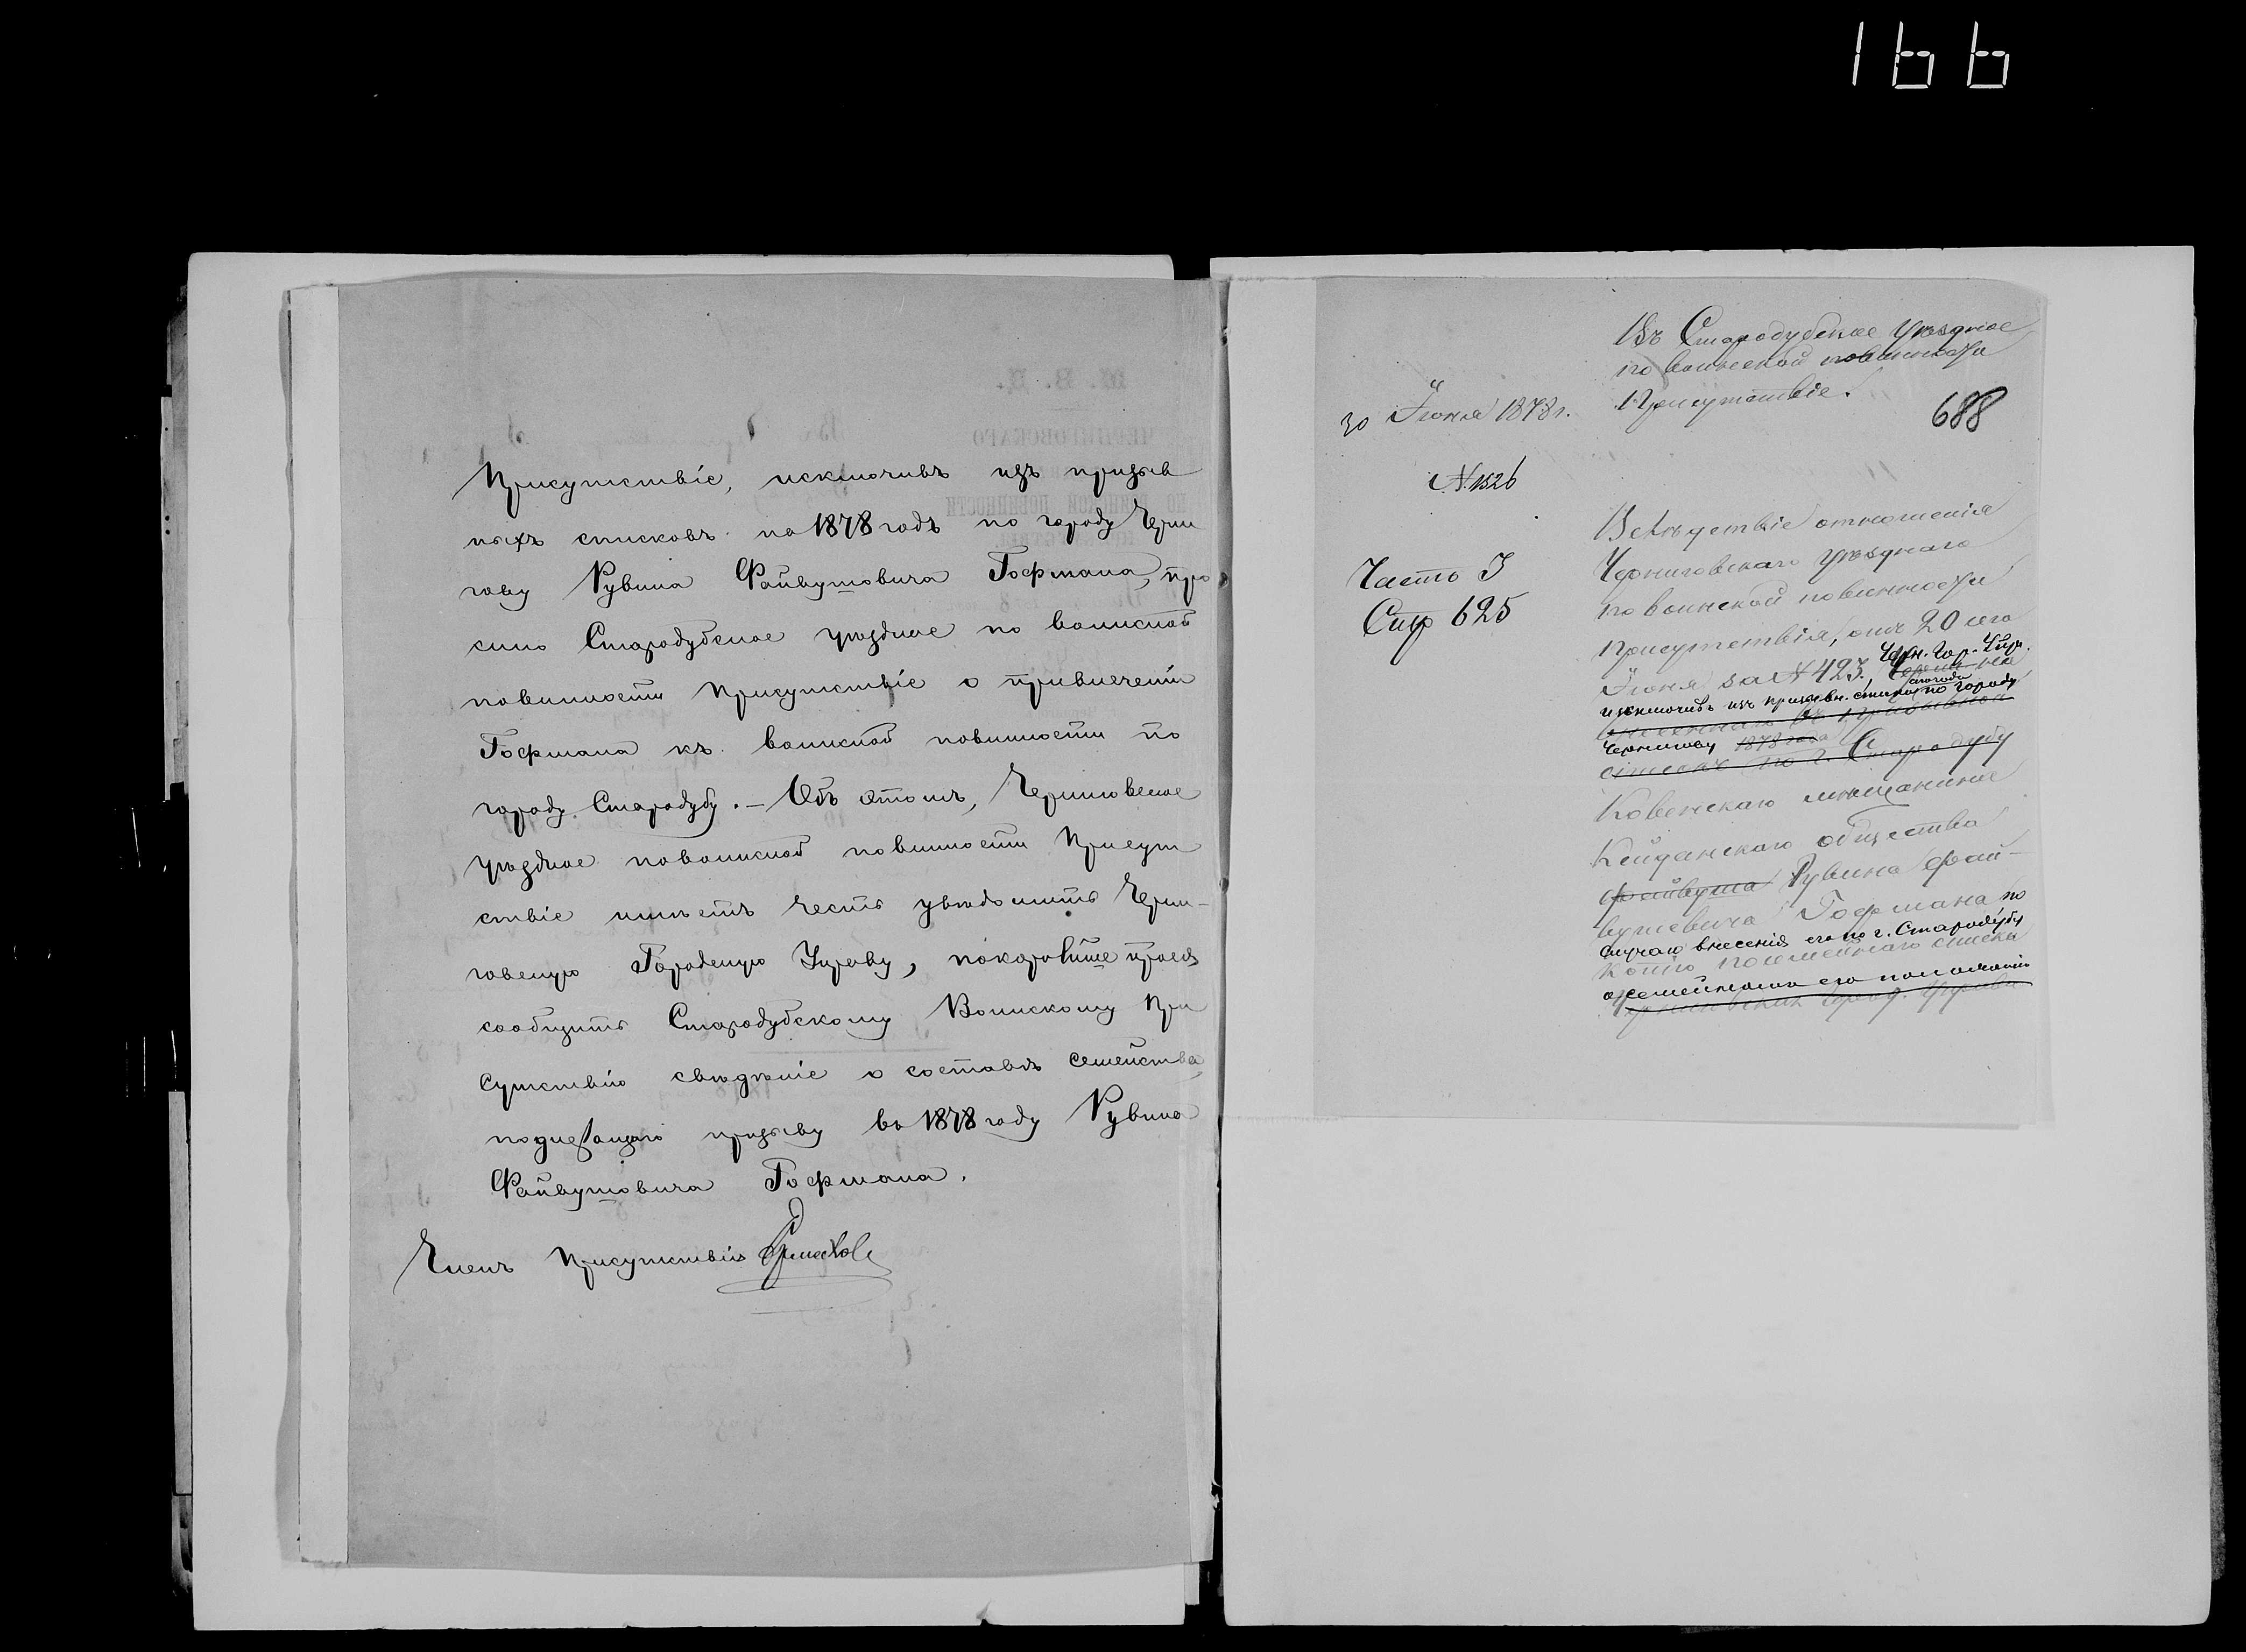 166
Присутствіе, исключивъ изъ призыв
ныхъ списковъ на 1878 годъ по городу Черни
гову Рувина Файвушовича Гофмана, про
сило Стародубское уѣздное по воинской
повинности Присутствіе о привлеченіи
Гофмана къ воинской повинности по
городу Стародубу. – Объ этомъ, Черниговское
уѣздное по воинской повинности Присут
ствіе имѣетъ честь увѣдомить Черни-
говскую Городскую Управу, покорнѣйше прося
сообщить Стародубскому Воинскому При
сутствію свѣдѣніе о составѣ семейства,
подлежащаго призыву въ 1878 году Рувина
Файвушовича Гофмана.
Членъ Присутствія
Въ Стародубское Уѣздное
по воинской повинности
Присутствіе.
30 Іюня 1878 г.
688
№ 1526
Часть I
Стр 625
Вслѣдствіе отношенія
Черниговскаго Уѣзднаго
по воинской повинности
присутствія, отъ 20 сего
Іюня за № 423, Черн. Гор. Упр.
исключивъ изъ призывн. списковъ по городу
внесеннаго въ призывной
Чернигову 1878 года
списокъ по г. Стародубу
Ковенскаго мѣщанина
Кейданскаго общества
Файвуша Рувина Фай-
вушевича Гофмана по
случаю внесенія его по г. Стародубу
копію посемейнаго списка
о семейномъ его положеніи
Город. Управа